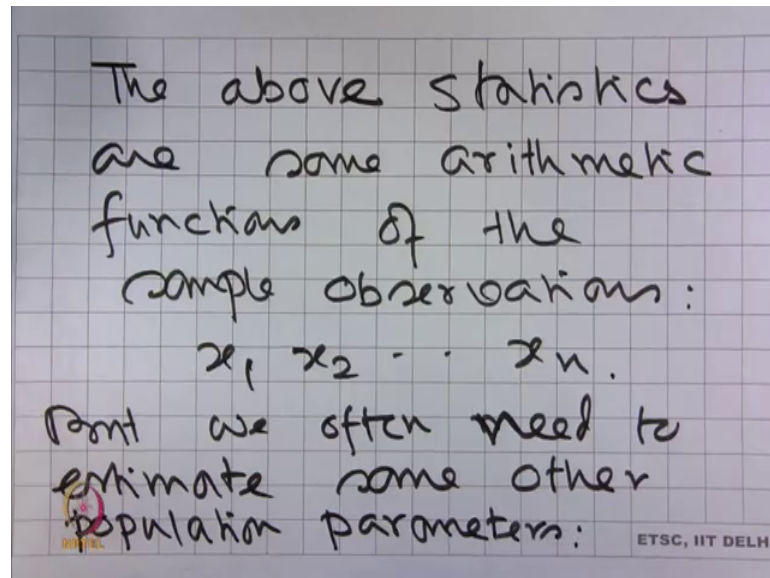 The above statistics
are some arithmetic
functions of the
sample observations:
x₁ x₂ . . xₙ.
But we often need to
estimate some other
population parameters:
NPTEL
ETSC, IIT DELH